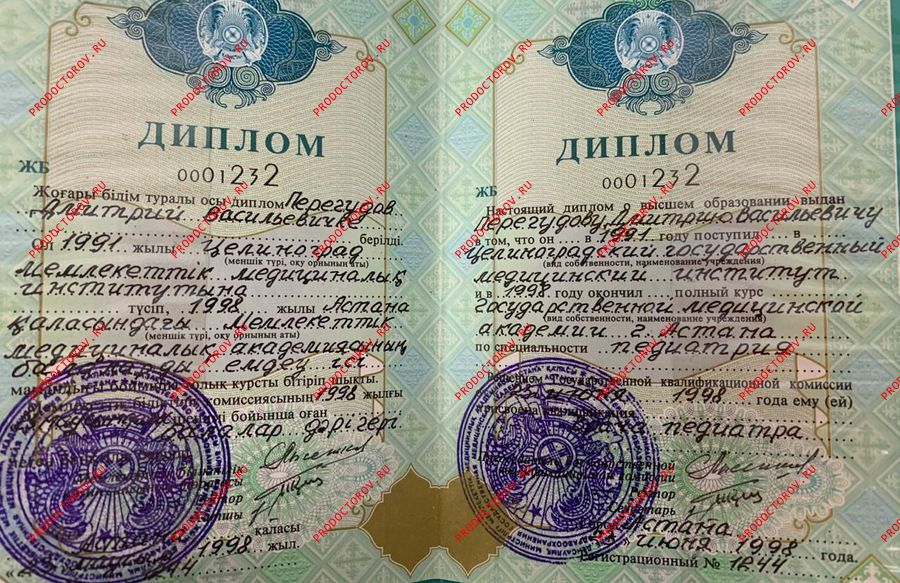 ДИПЛОМ
ЖБ 0001232
Жоғары білім туралы осы диплом Перегудов
Дмитрий Васильевичке
берілді.
Ол 1991 жылы Целиноград
(меншік түрі, оқу орнының аты)
мемлекеттік медициналық
институтына
түсіп, 1998 жылы Астана
қаласындағы Мемлекеттік
(меншік түрі, оқу орнының аты)
медициналық академиданың
емдеу ісі
мамандығы бойынша толық курсты бітіріп шықты.
комиссиясының 1998 жылғы
бойынша оған
балалар дәрігері
қаласы
Астана
1998 жыл.
1244
ДИПЛОМ
ЖБ 0001232
Настоящий диплом о высшем образовании выдан
Перегудову Дмитрию Васильевичу
в том, что он в 1991 году поступил в
Целиноградский государственный
(вид собственности, наименование учреждения)
медицинский институт
и в 1998 году окончил полный курс
Государственной медицинской
(вид собственности, наименование учреждения)
академии г. Астана
по специальности педиатрия
Решением Государственной квалификационной комиссии
1998 года ему (ей)
присвоена квалификация
врача педиатра
Государственной
комиссии
Ректор
Секретарь
Астана
июня 1998 года.
Регистрационный № 1244
PRODOCTOROV.RU